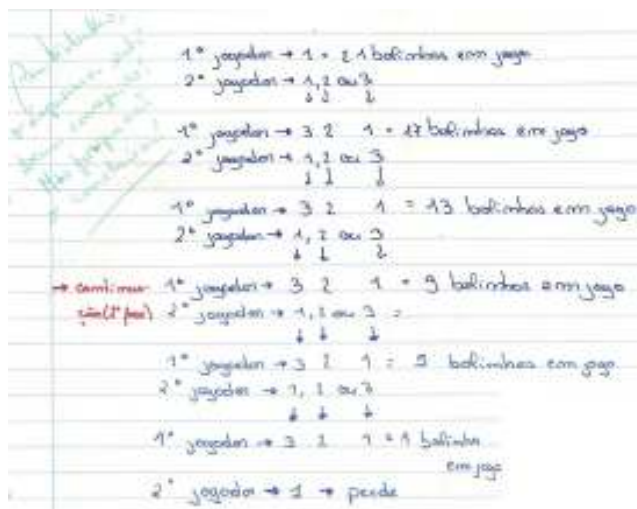 Parabéns
1º jogador → 1 = 21 bolinhas em jogo
2º jogador → 1, 2 ou 3
↓ ↓ ↓
1º jogador → 3 2 1 = 17 bolinhas em jogo
2º jogador → 1, 2 ou 3
↓ ↓ ↓
1º jogador → 3 2 1 = 13 bolinhas em jogo
2º jogador → 1, 2 ou 3
↓ ↓ ↓
→ continua 1º jogador → 3 2 1 = 9 bolinhas em jogo
ção 2º jogador → 1, 2 ou 3 =
↓ ↓ ↓
1º jogador → 3 2 1 = 5 bolinhas em jogo
2º jogador → 1, 2 ou 3
↓ ↓ ↓
1º jogador → 3 2 1 = 1 bolinha
em jogo
2º jogador → 1 → perde